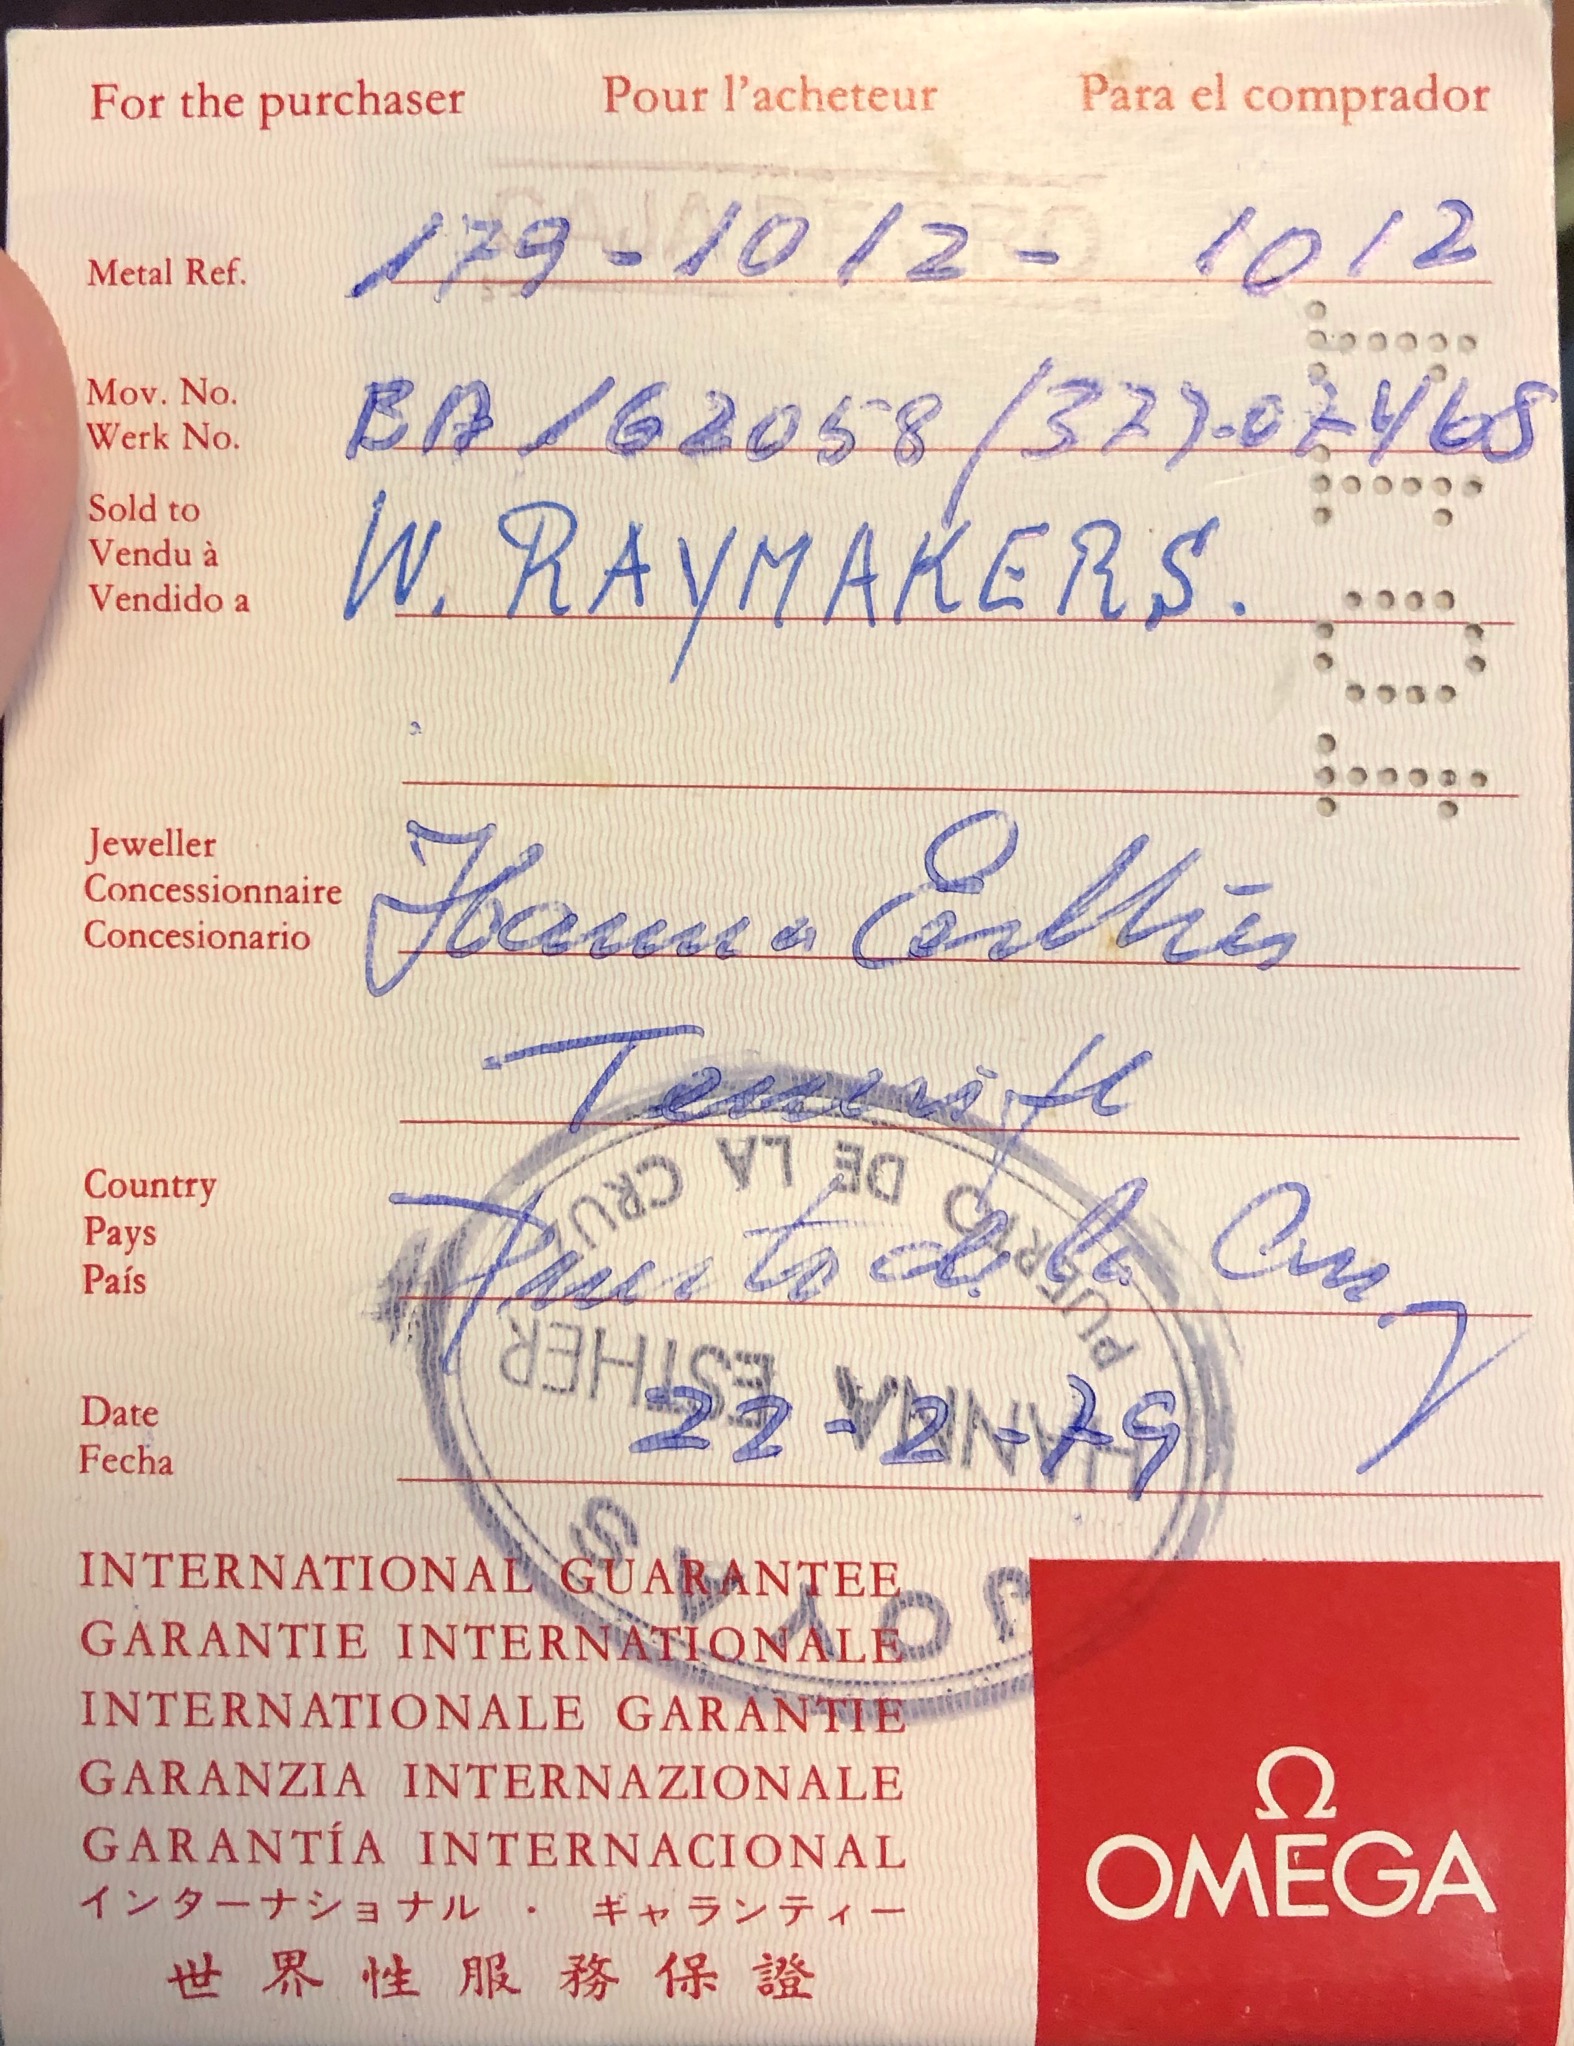 For the purchaser Pour l'acheteur Para el comprador
Metal Ref. 179-1012- 1012
Mov. No.
Werk No. BA 162058/377-07468
Sold to
Vendu à
Vendido a
W. RAYMAKERS.
Jeweller
Concessionnaire
Concesionario
Tenerife
Country
Pays
País
Puerto de la Cruz
Date
Fecha
22-2-79
JOYAS
HANNA ESTHER
PUERTO DE LA CRUZ
INTERNATIONAL GUARANTEE
GARANTIE INTERNATIONALE
INTERNATIONALE GARANTIE
GARANZIA INTERNAZIONALE
GARANTÍA INTERNACIONAL
インターナショナル・ギャランティー
世界性服務保證
Ω
OMEGA